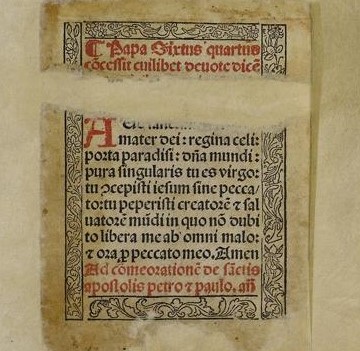 ¶ Papa Sixtus quartus
cōcessit cuilibet deuote dicē
mater dei: regina celi:
porta paradisi: dn̄a mundi:
pura singularis tu es virgo:
tu ↄcepisti iesum sine pecca-
to: tu peperisti creatorē ⁊ sal
uatorē mūdi in quo nō dubi
to libera me ab omni malo:
⁊ ora ꝓ peccato meo. Amen
Ad cōmeorationē de sāctis
apostolis petro ⁊ paulo. an̄